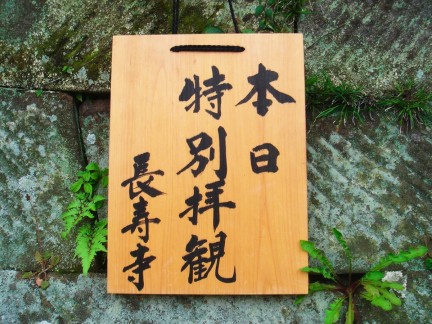 本日
特別拝観
長寿寺